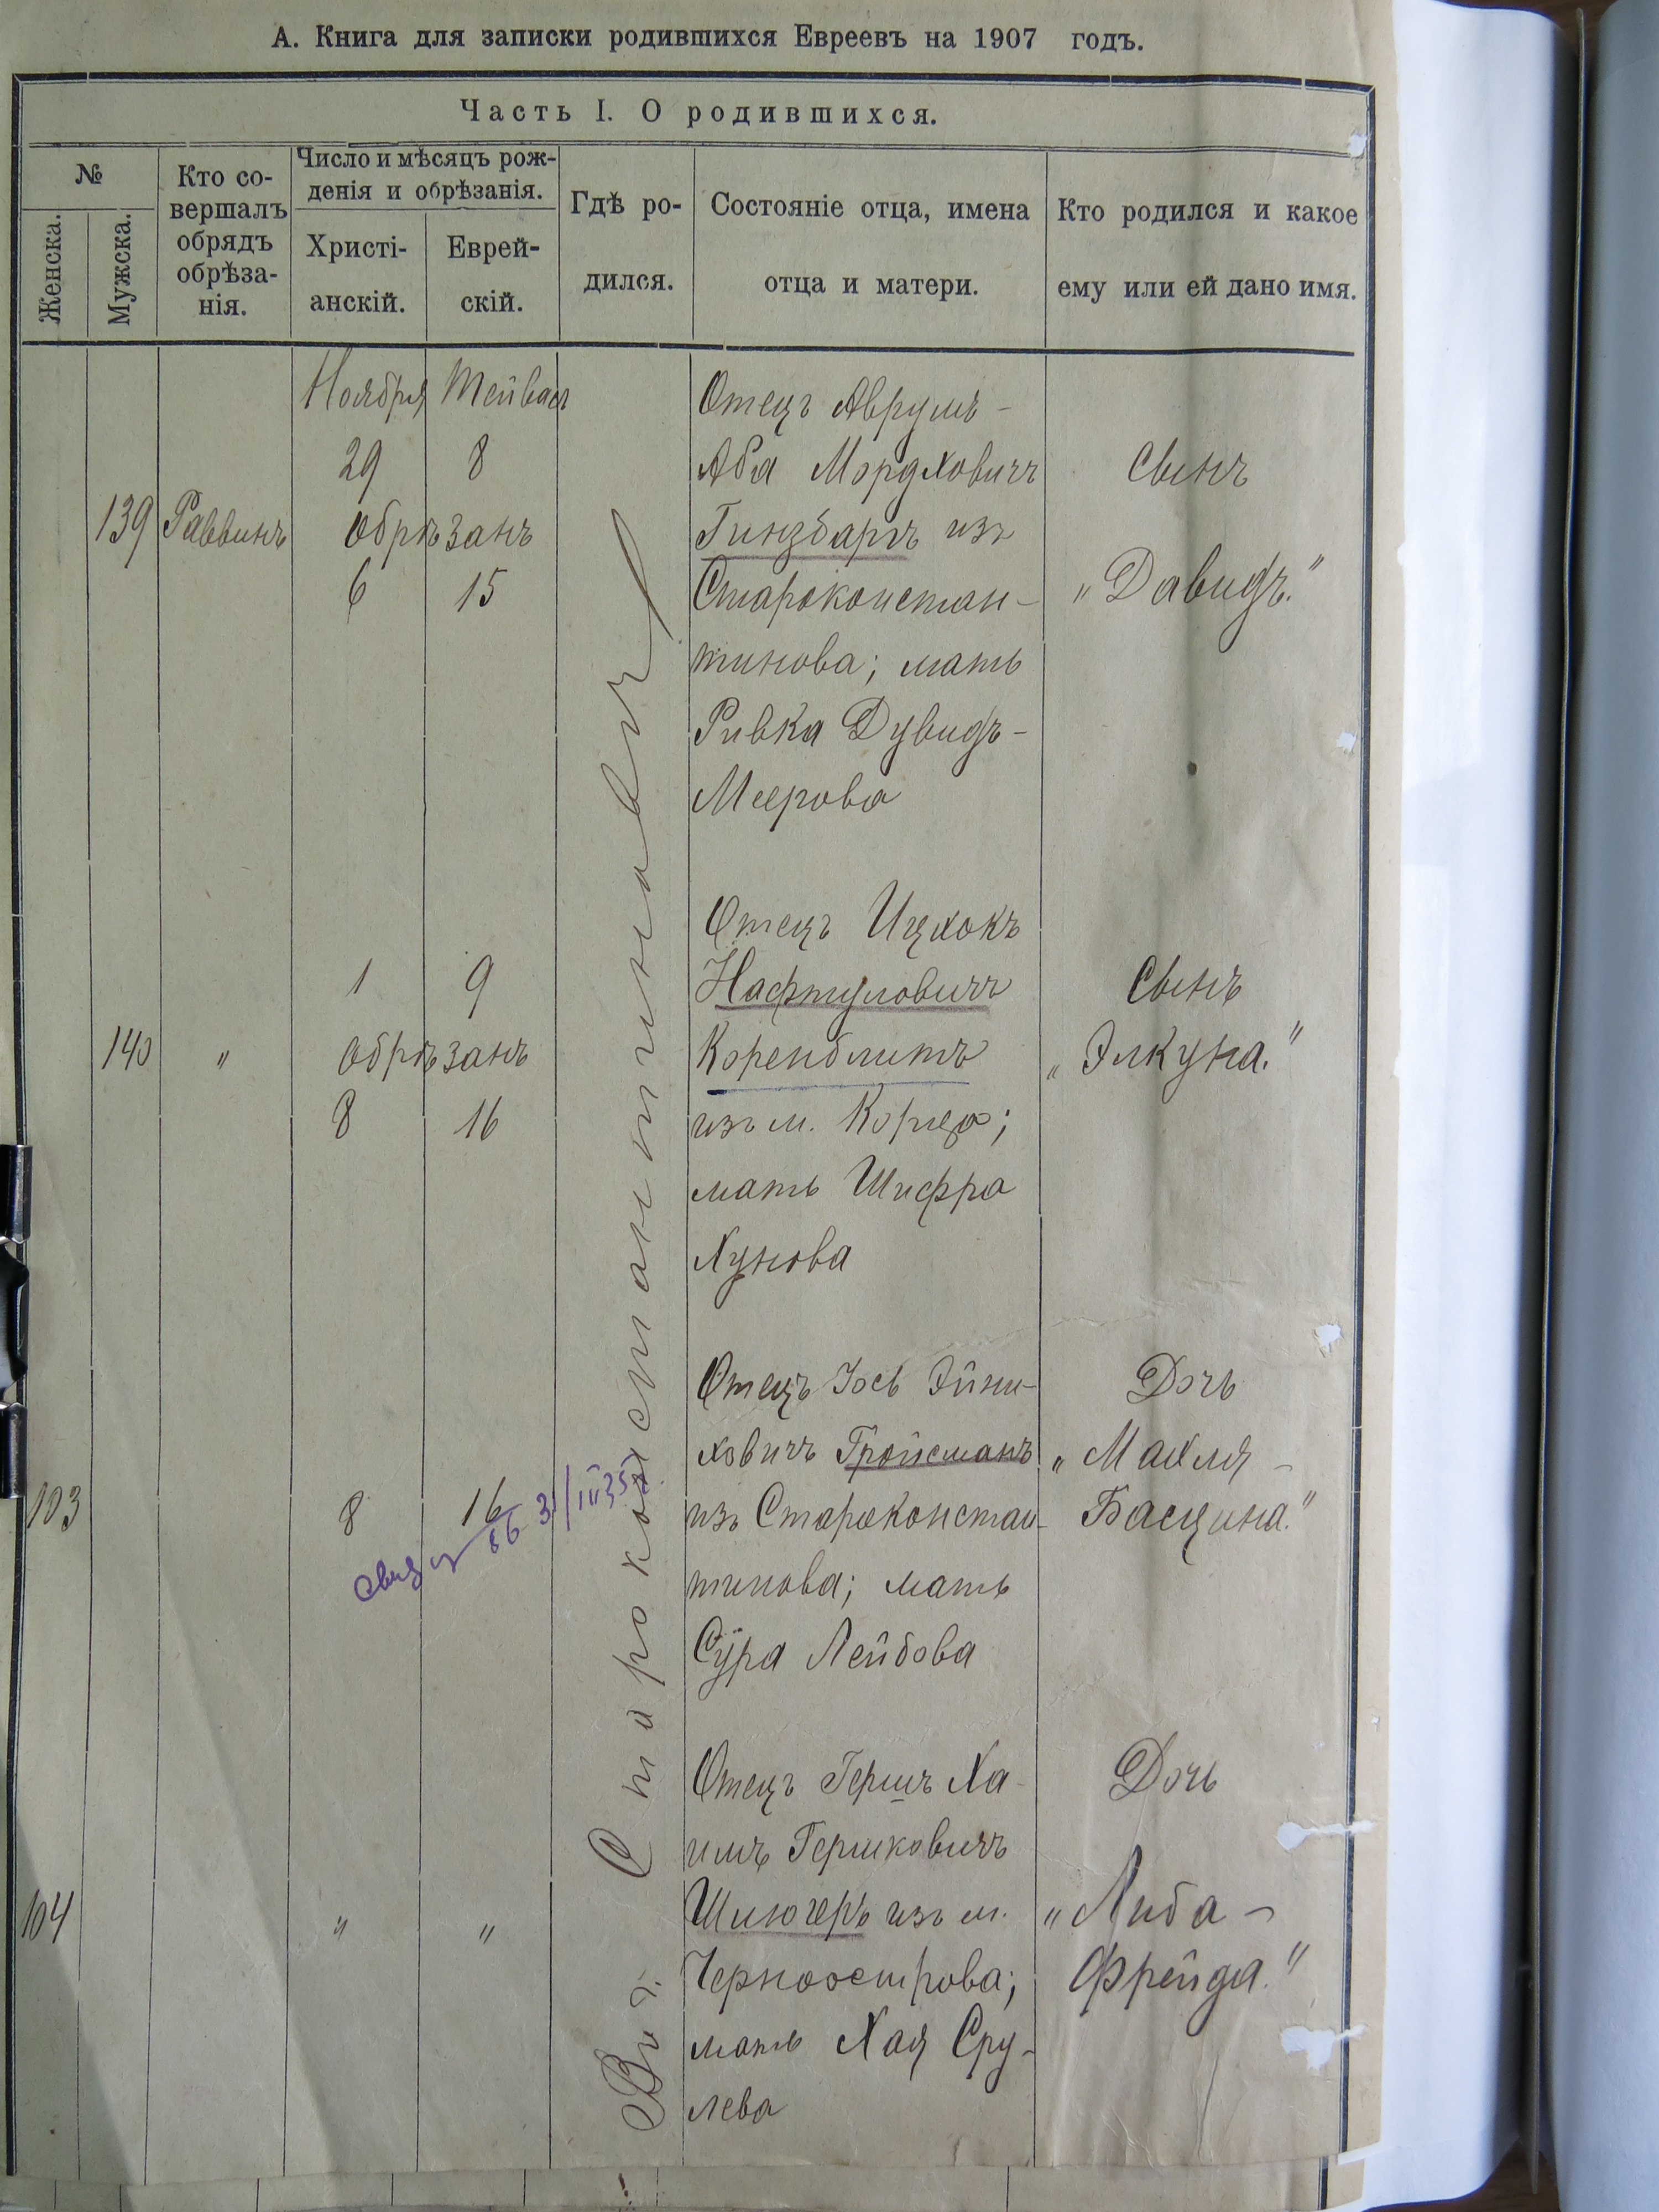 А. Книга для записки родившихся Евреевъ на 1907 годъ.
Часть I. О родившихся.
№
Женска.
Мужска.
Кто совершалъ
Кто со-
вершалъ
обрядъ
обрѣза-
нія.
Число и мѣсяцъ рож-
денія и обрѣзанія.
Христі-
анскій.
Еврей-
скій.
Гдѣ ро-
дился.
Состояніе отца, имена
отца и матери.
Кто родился и какое
ему или ей дано имя.
139
Раввинъ
Ноября Тейвас
29 8
обрѣзанъ
6 15
Отецъ Аврумъ-
Аба Мордховичъ
Гинзбаргъ изъ
Староконстан-
тинова; мать
Ривка Дувидъ-
Меерова
Сынъ
„Давидъ."
140
"
1 9
обрѣзанъ
8 16
Отецъ Ицхокъ
Нафтуловичъ
Коренблитъ
изъ м. Корца;
мать Шифра
Хунова
Сынъ
„Элкуна."
103
8 16
86 31/III 35
Отецъ Іось Эйни-
ховичъ Гройсманъ
изъ Староконстан-
тинова; мать
Сура Лейбова
Дочь
„Махля-
Басцина."
104
" "
Отецъ Гершъ Ха-
имъ Гершковичъ
Шлюгеръ изъ м.
Черноострова;
мать Хая Сру-
лева
Дочь
„Либа-
Фрейда."
Въ г. Староконстантиновѣ